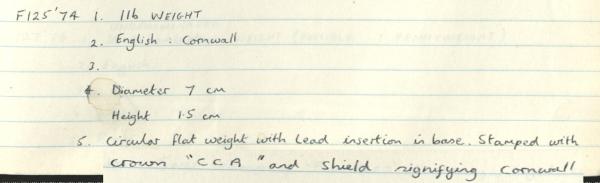 F125'74 1. 1lb WEIGHT
2. English : Cornwall
3.
4. Diameter 7 cm
Height 1.5 cm
5. Circular flat weight with lead insertion in base. Stamped with
crown "CCA" and shield signifying Cornwall